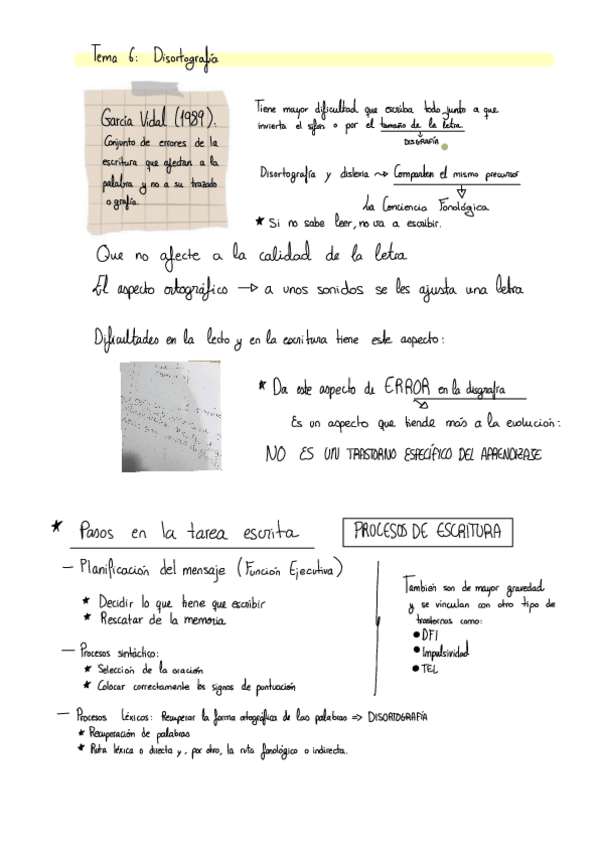 Tema 6: Disortografía
García Vidal (1989):
Conjunto de errores de la
escritura que afectan a la
palabra y no a su trazado
o grafía.
Tiene mayor dificultad que escriba todo junto a que
invierta el sifon o por el tamaño de la letra.
DISGRAFÍA
Disortografía y dislexia → Comparten el mismo precursor
La Conciencia Fonológica
* Si no sabe leer, no va a escribir.
Que no afecte a la calidad de la letra
El aspecto ortográfico → a unos sonidos se les ajusta una letra
Dificultades en la lecto y en la escritura tiene este aspecto:
* Da este aspecto de ERROR en la disgrafía
Es un aspecto que tiende más a la evolución:
NO ES UN TRASTORNO ESPECÍFICO DEL APRENDIZAJE
* Pasos en la tarea escrita
PROCESOS DE ESCRITURA
— Planificación del mensaje (Función Ejecutiva)
* Decidir lo que tiene que escribir
* Rescatar de la memoria
— Procesos sintáctico:
* Selección de la oración
* Colocar correctamente los signos de puntuación
También son de mayor gravedad
y se vinculan con otro tipo de
trastornos como:
• DFI
• Impulsividad
• TEL
— Procesos Léxicos: Recuperar la forma ortográfica de las palabras => DISORTOGRAFÍA
* Recuperación de palabras
* Ruta léxica o directa y, por otro, la ruta fonológico o indirecta.